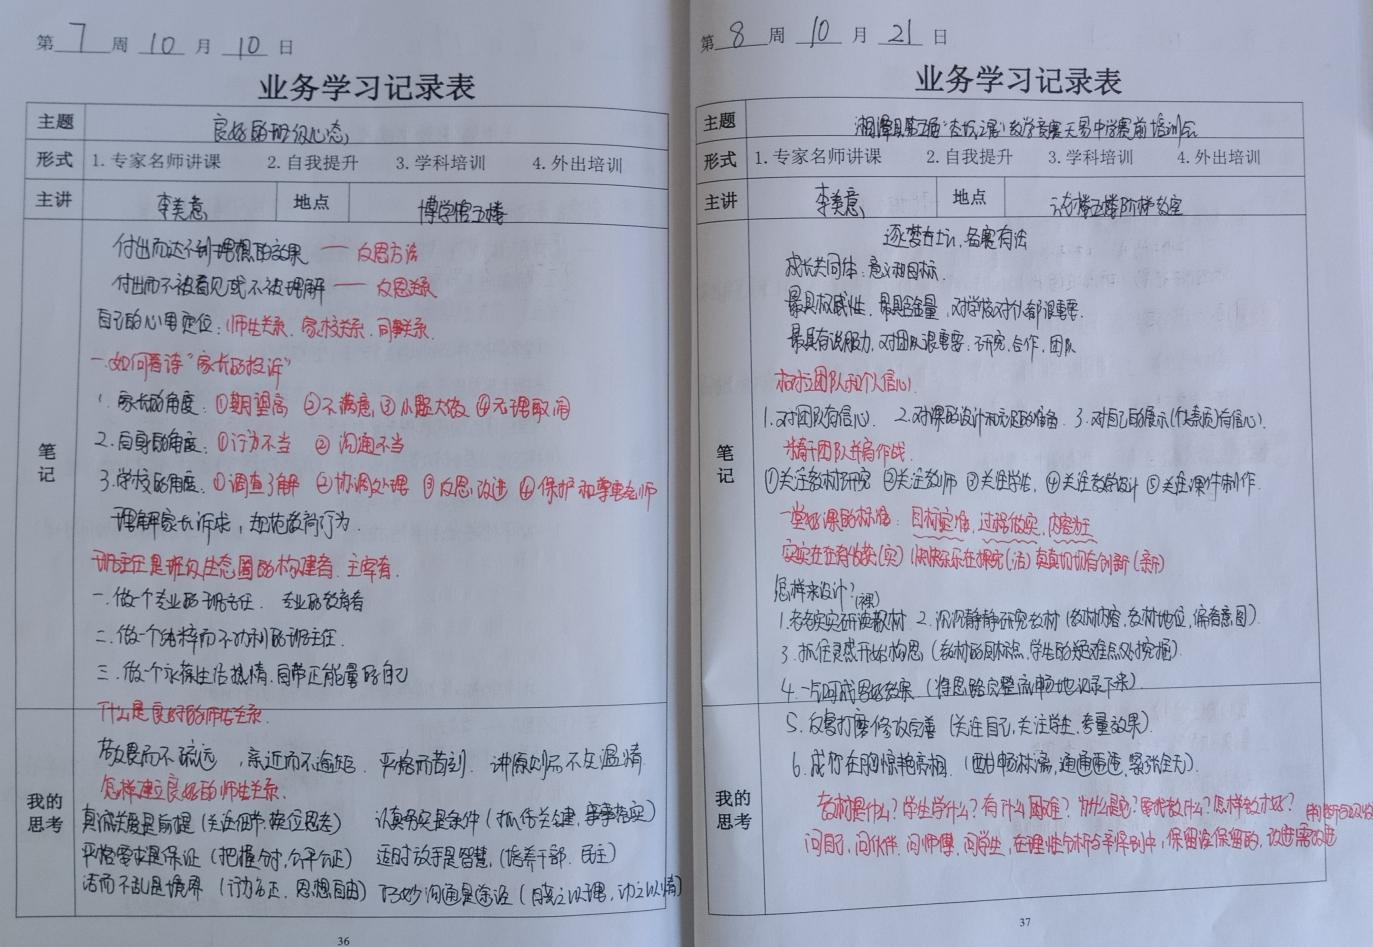 第 7 周 10 月 10 日
业务学习记录表
主题 良好的班级心态
形式 1.专家名师讲课 2.自我提升 3.学科培训 4.外出培训
主讲 李美意 地点 博学馆五楼
笔记
付出而达不到理想的效果 —— 反思方法
付出而不被看见或不被理解 —— 反思关系
自己的心里定位：师生关系、家校关系、同事关系.
一.如何看待“家长的投诉”
1.家长的角度：①期望高 ②不满意 ③小题大做 ④无理取闹
2.自身的角度：①行为不当 ②沟通不当
3.学校的角度：①调查了解 ②协调处理 ③反思改进 ④保护和尊重老师
理解家长诉求，规范教育行为
班主任是班级生态圈的构建者、主宰者.
一.做个专业的班主任、专业的教育者
二.做一个纯粹而不功利的班主任.
三.做一个永葆生活热情、自带正能量的自己
什么是良好的师生关系.
我的思考
敬畏而不疏远，亲近而不逾矩、严格而不苛刻、讲原则而不失温情
怎样建立良好的师生关系.
真诚关爱是前提（关注细节、换位思考） 认真务实是条件（抓住关键、事事落实）
严格要求是保证（把握分寸，公平公正） 适时放手是智慧（培养干部、民主）
活而不乱是境界（行为名正、思想自由） 巧妙沟通是途径（晓之以理，动之以情）
36
第 8 周 10 月 21 日
业务学习记录表
主题 湘潭县第五届 教学竞赛天易中学赛前培训会
形式 1.专家名师讲课 2.自我提升 3.学科培训 4.外出培训
主讲 李美意 地点 五楼阶梯教室
笔记
逐梦 ，备赛有法
成长共同体：意义和目标.
最具权威性、最具含金量，对学校对个人都很重要.
最具有说服力，对团队很重要：研究、合作、团队
树立团队和个人信心.
1.对团队有信心. 2.对课的设计和充足的准备. 3.对自己的展示(人素质)有信心.
精干团队并肩作战.
①关注教材研究 ②关注教师 ③关注学生 ④关注教学设计 ⑤关注课件制作.
一堂好课的标准：目标实准，过程做实，内容为王
实实在在有收获(实) 快快乐乐在探究(活) 真真切切有创新(新)
怎样来设计？(裸)
1.老老实实研读教材 2.沉沉静静研究教材（教材内容，教材地位，编者意图）.
3.抓住灵感开始构思（教材的目标点，学生的疑难点处挖掘）.
4.一气呵成思好结果（将思路完整流畅地记录下来）.
我的思考
5.反复打磨修改完善（关注自己，关注学生，考量效果）.
6.成竹在胸惊艳亮相.
教材是什么？学生学什么？有什么困难？为什么是它？要我教什么？怎样教才好？
问自己，问伙伴、问师傅、问学生，在理性分析与亲得到中，保留该保留的，改进需改进
37